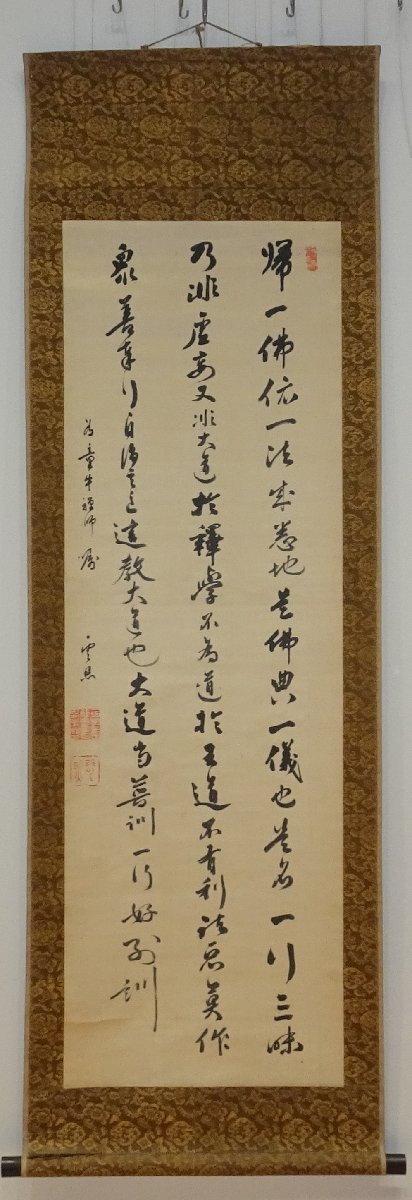 帰一佛依一法 悉地是佛典一儀也是名一行三昧
乃非虚妄又非大道於釋學不為道於王道不有利諸惡莫作
衆善奉行自淨 違教大道也大道当善訓一行好 訓
為童牛禅師